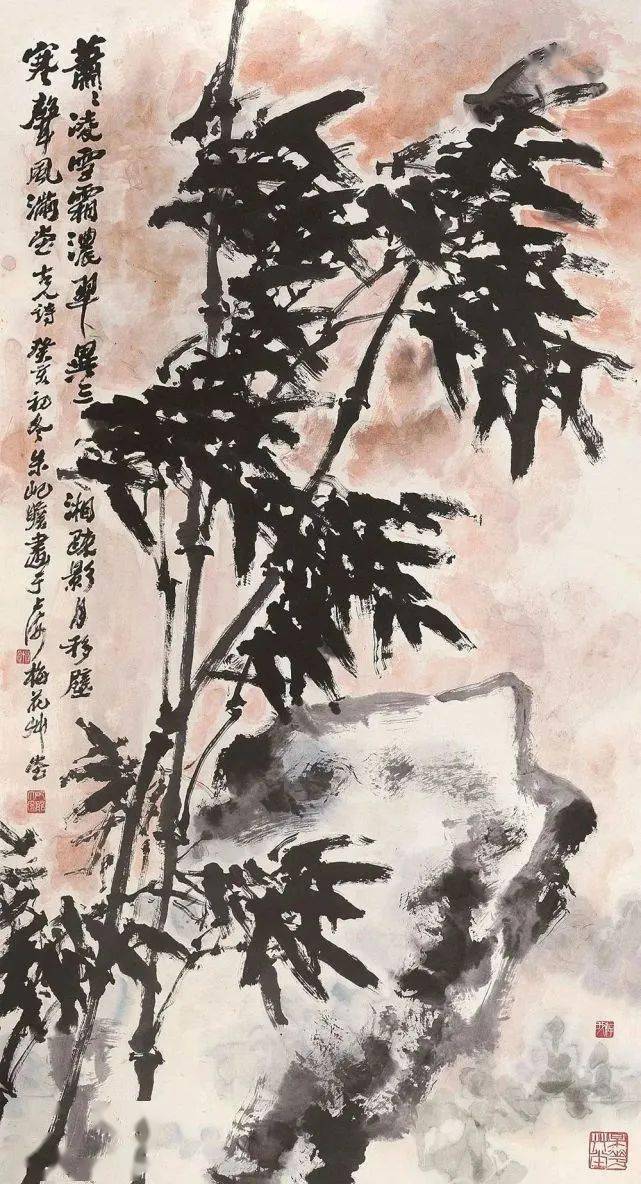 蕭〻凌雪霜濃翠異三湘疏影月移壁
寒聲風滿堂 詩 癸亥初冬朱屺瞻畫于上海梅花艸堂